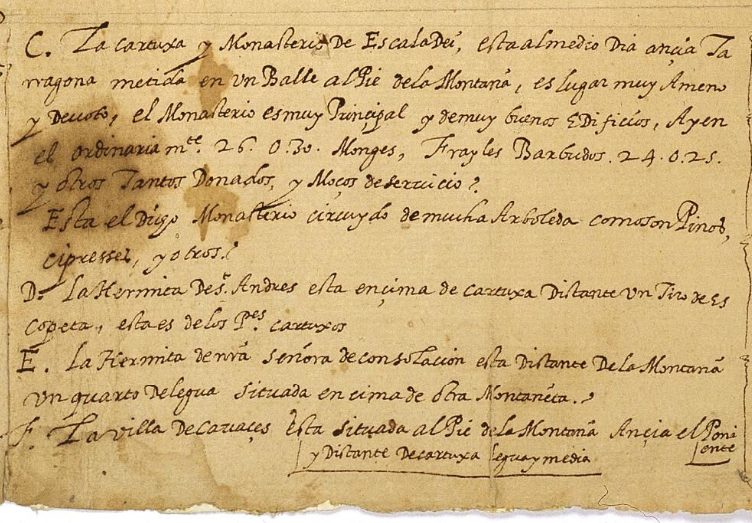 C. La cartuxa y Monasterio de EscalaDei, esta al medio Dia ançia Ta
rragona metida en un Balle al Pie de la Montaña, es lugar muy Ameno
y Devoto, el Monasterio es muy Prinçipal y de muy buenos EDificios, Ay en
el ordinariamte. 26. o. 30. Monges, Frayles Barbudos. 24. o. 25.
y otros Tantos Donados, y Moços de servicio.
Esta el Digo Monasterio circuydo de mucha Arboleda como son Pinos,
çipresses, y otros.
D. La Hermita de S. Andres esta ençima de cartuxa Distante un Tiro de Es
copeta, esta es de los Pes. cartuxos
E. La Hermita de nra señora de consolacion esta Distante De la Montaña
un quarto De legua situada en cima de otra Montañeta.
F. La villa De Cavaçes Esta situada al Pie de la Montaña Ançia el Poni
ente
y Distante De cartuxa legua y media